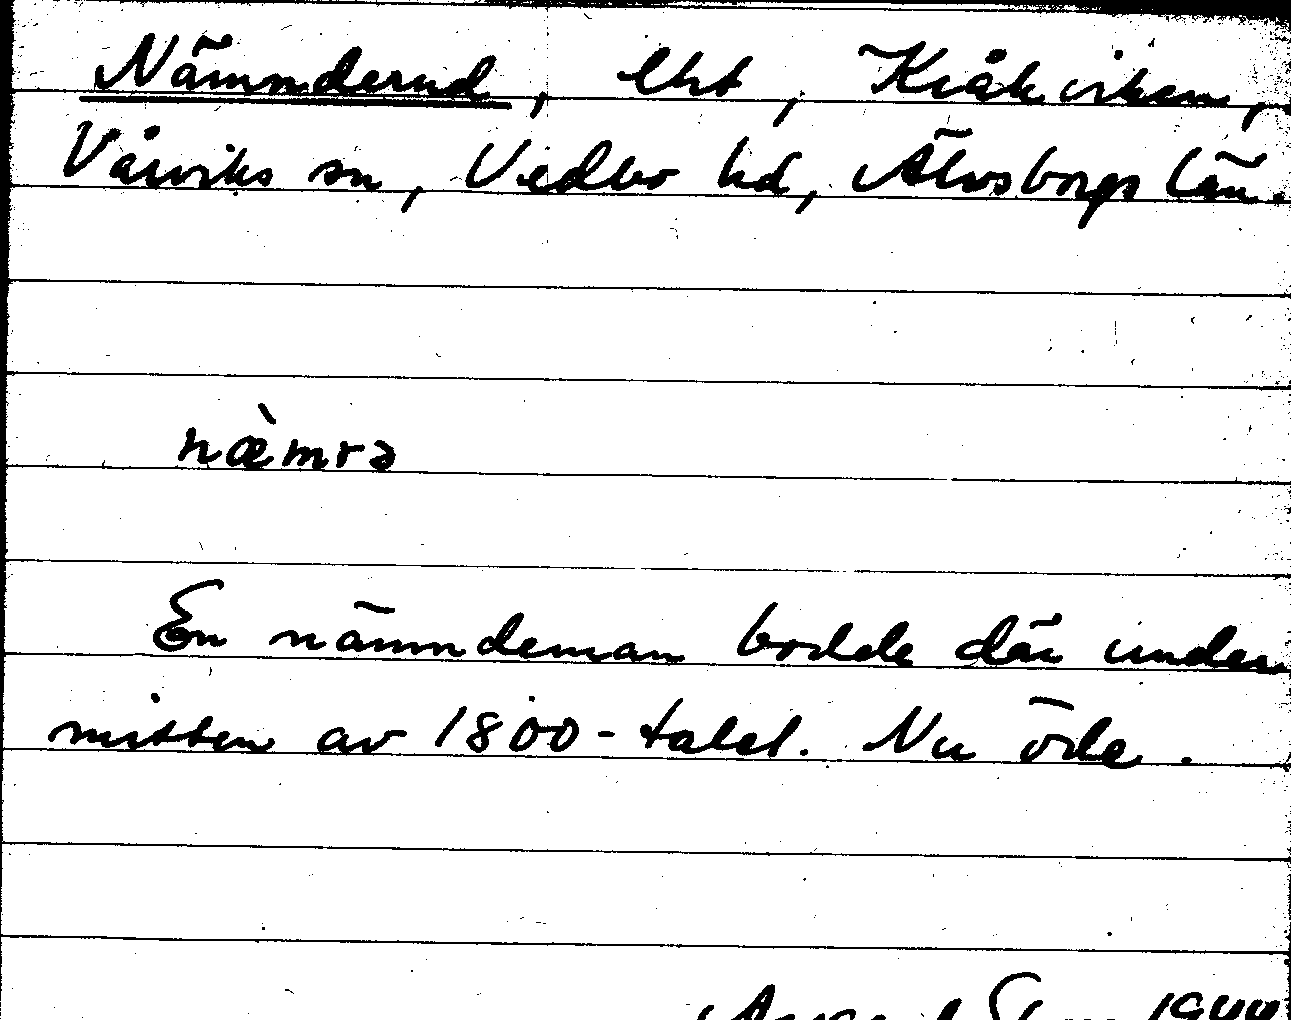 Nämnderud, lht, Kråkviken,
Vårviks sn, Vedbo hd, Älvsborgs län.
næ̀mrə
En nämndeman bodde där under
mitten av 1800-talet. Nu öde.
1944